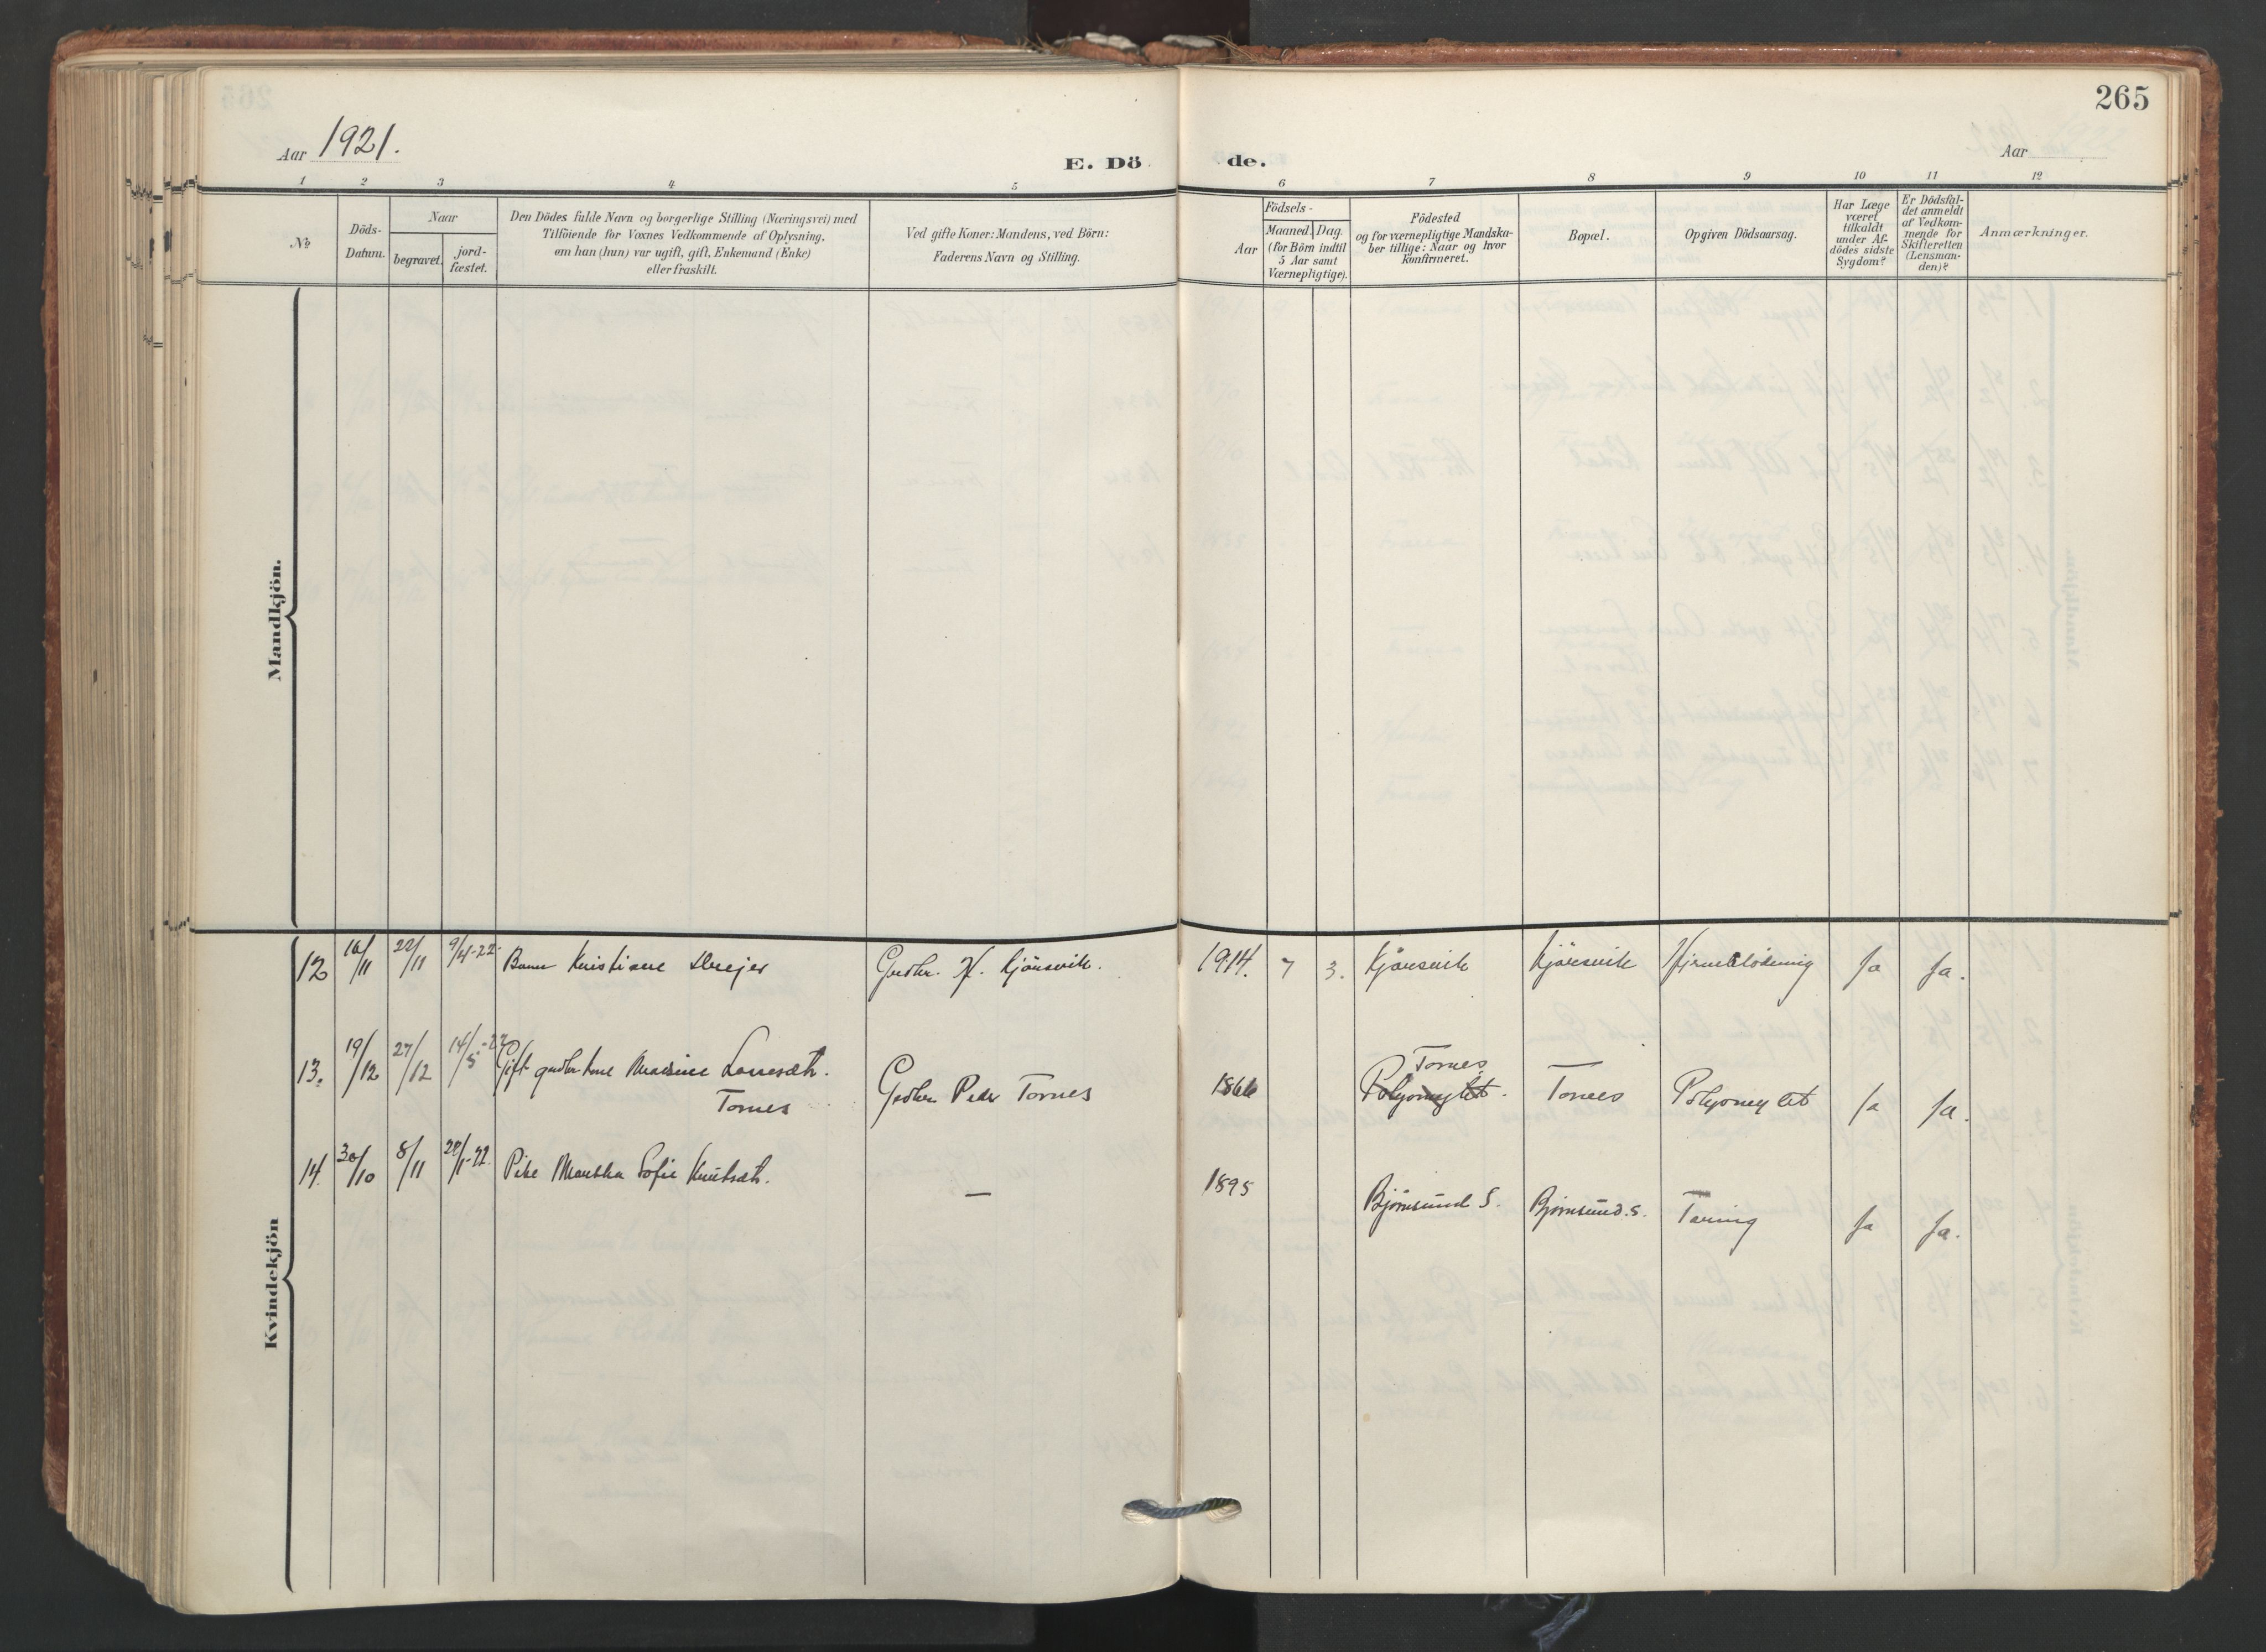 265
Aar 1921.
E. Dö
de.
Aar
1 2 3 4 5 6 7 8 9 10 11 12
№
Döds-
Datum.
Naar
begravet.
jord-
fæstet.
Den Dödes fulde Navn og borgerlige Stilling (Næringsvei) med
Tilföiende for Voxnes Vedkommende af Oplysning,
om han (hun) var ugift, gift, Enkemand (Enke)
eller fraskilt.
Ved gifte Koner: Mandens, ved Börn:
Faderens Navn og Stilling.
Födsels-
Aar
Maaned.
Dag.
(for Börn indtil
5 Aar samt
Værnepligtige).
Födested
og for værnepligtige Mandska-
ber tillige: Naar og hvor
Konfirmeret.
Bopæl.
Opgiven Dödsaarsag.
Har Læge
været
tilkaldt
under Af-
dödes sidste
Sygdom?
Er Dödsfal-
det anmeldt
af Vedkom-
mende for
Skifteretten
(Lensman-
den)?
Anmærkninger.
Mandkjön.
Kvindekjön
12 16/11 22/11 9/4-22 Barn Kristiane Gbr. H. Kjörsvik. 1914. 7 3. Kjörsvik Kjörsvik Hjerneblödning Ja Ja.
13. 19/12 27/12 14/5-22 Gift gbr. kone
Tornes Gbr. Peder Tornes 1866 Tornes
Polyomylit. Tornes Polyomylit Ja Ja.
14. 30/10 8/11 22/1-22. Pike Martha Sofie Knutsdt. — 1895 Bjørnsund S. Bjørnsund. S. Tæring Ja Ja.